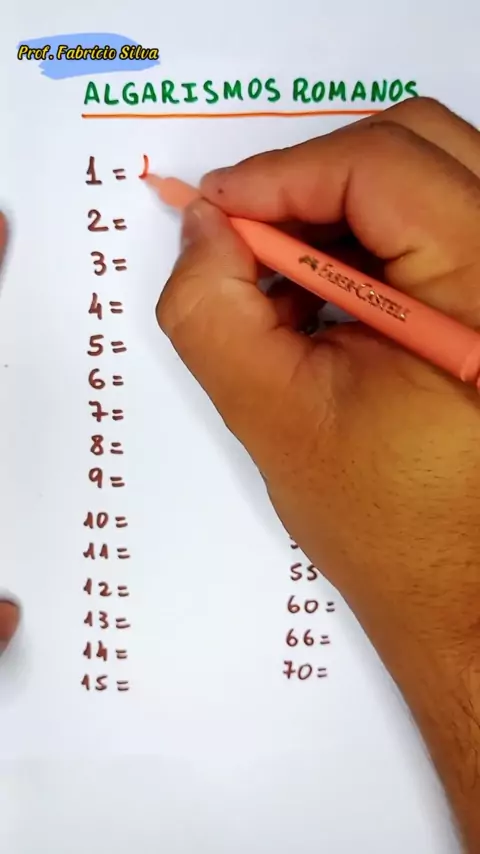 Prof. Fabrício Silva
ALGARISMOS ROMANOS
1 = I
2 =
3 =
4 =
5 =
6 =
7 =
8 =
9 =
10 =
11 =
12 =
13 =
14 =
15 =
55
60 =
66 =
70 =
FABER-CASTELL